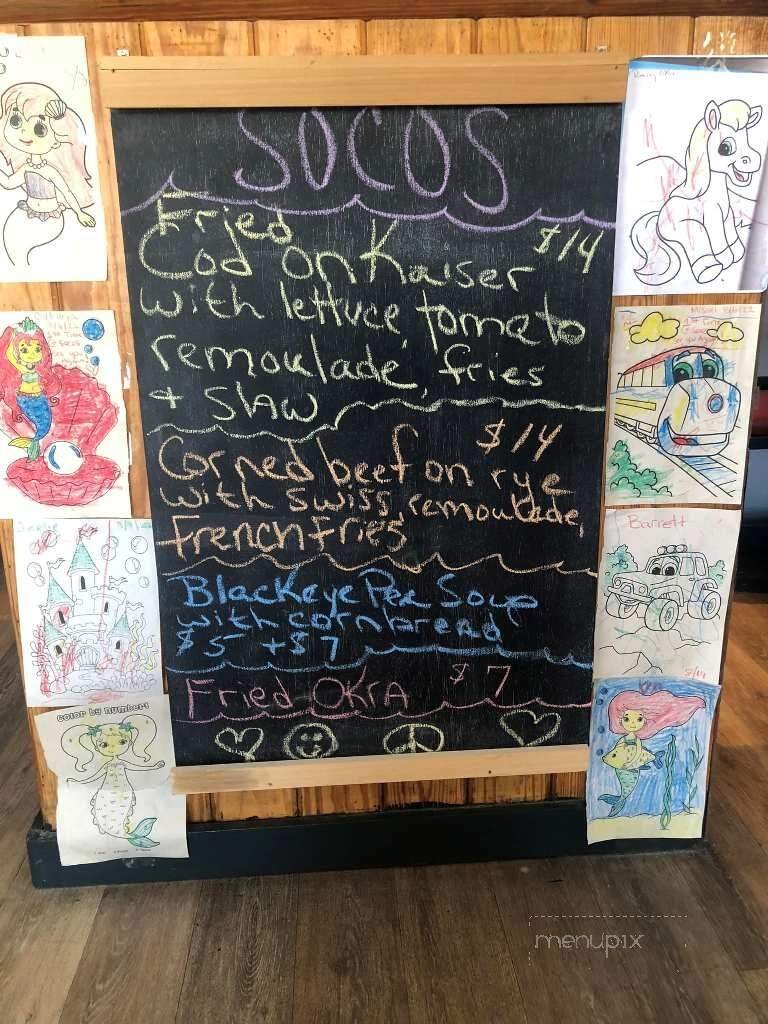 SOCOS
Fried
Cod on Kaiser $14
with lettuce, tomato
remoulade, fries
+ SLAW
$14
Corned beef on rye
with swiss, remoulade,
french fries
Blackeye Pea Soup
with cornbread
$5 + $7
Fried OKrA $7
Barrett
5/14
COLOR BY NUMBER!
menupix